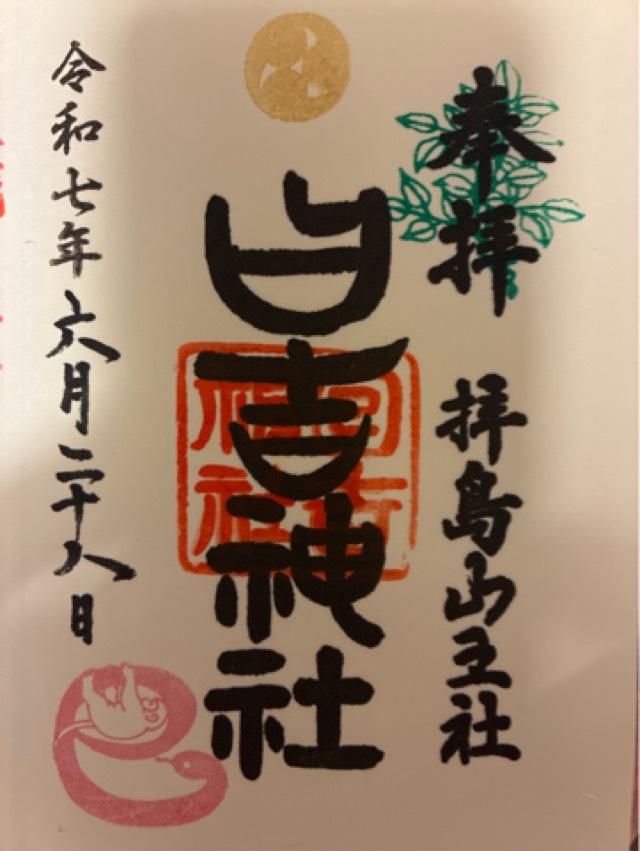 奉拝
拝島山王社
日吉神社
日吉神社
令和七年六月二十八日